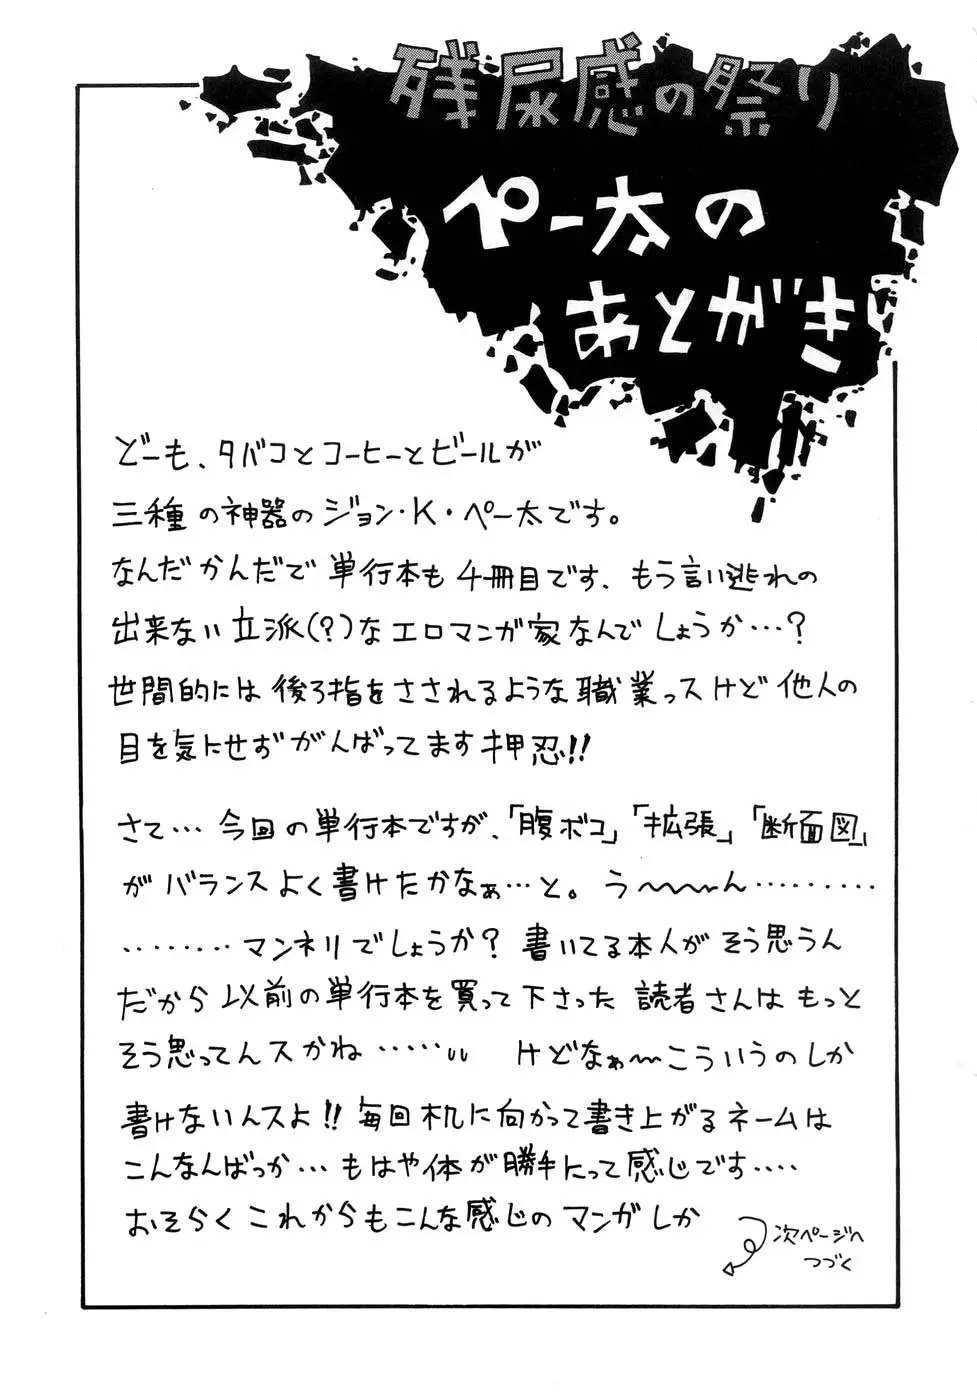 残尿感の祭り
ペー太の
あとがき
どーも、タバコとコーヒーとビールが
三種の神器のジョン・K・ペー太です。
なんだかんだで単行本も4冊目です、もう言い逃れの
出来ない立派(?)なエロマンガ家なんでしょうか…?
世間的には後ろ指をさされるような職業っスけど他人の
目を気にせずがんばってます押忍!!
さて…今回の単行本ですが、「腹ボコ」「拡張」「断面図」
がバランスよく書けたかなぁ…と。う〜〜〜ん………
………マンネリでしょうか?書いてる本人がそう思うん
だから以前の単行本を買って下さった読者さんはもっと
そう思ってんスかね……ււ けどなぁ〜こういうのしか
書けないんスよ!!毎回机に向かって書き上がるネームは
こんなんばっか…もはや体が勝手にって感じです‥‥
おそらくこれからもこんな感じのマンガしか
次ページへ
つづく